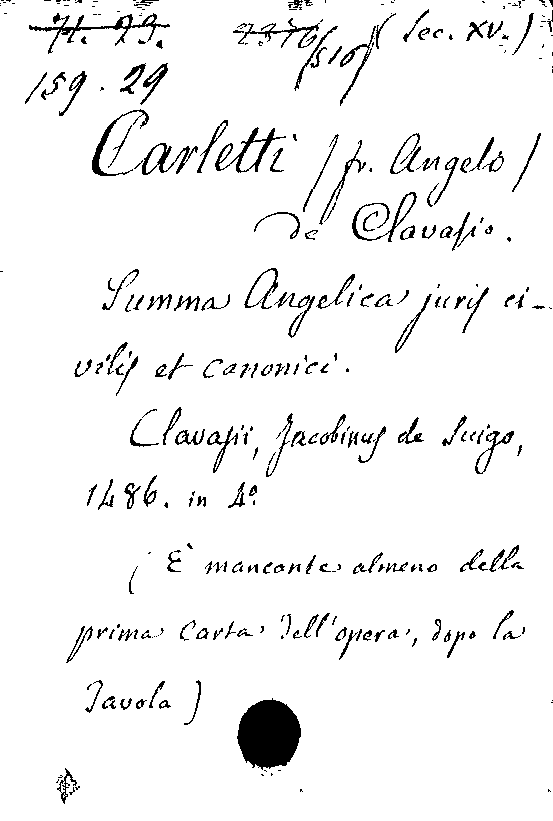 71. 23. 2376/(516) (Sec. XV.)
159. 29
Carletti (fr. Angelo)
de Clavasio.
Summa Angelica juris ci-
vilis et canonici.
Clavasii, Jacobinus de Suigo,
1486. in 4º
(È mancante almeno della
prima carta dell'opera, dopo la
Tavola)